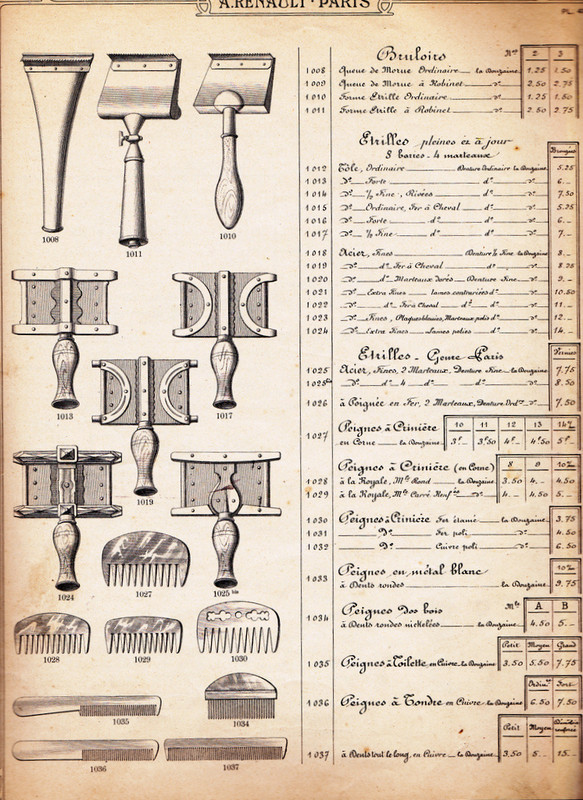 A. RENAULT · PARIS
PL. 4
Bruloirs Nos 2 3
1008 Queue de Morue Ordinaire la Douzaine 1.25 1.50
1009 Queue de Morue à Robinet do 2.50 2.75
1010 Forme Etrille Ordinaire do 1.25 1.50
1011 Forme Etrille à Robinet do 2.50 2.75
Etrilles pleines et à jour
8 barres - 4 marteaux
1012 Tôle, Ordinaire Denture Ordinaire la Douzaine 5.25
1013 do Forte do do 6._
1014 do ½ Fine, Rivées do do 7.50
1015 do Ordinaire, Fer à Cheval do do 5.25
1016 do Forte do do do 6._
1017 do ½ Fine do do do 7._
1018 Acier, Fines Denture ½ Fine la Douzaine 8._
1019 do do Fer à Cheval do do 8.75
1020 do do Marteaux dorés Denture Fine do 9._
1021 do Extra Fines lames contrariées do do 10.50
1022 do do Fer à Cheval do do 11._
1023 do Fines, Marteaux polis do do 12._
1024 do Extra Fines Lames polies do do 14._
Etrilles - Genre Paris
1025 Acier, Fines, 2 Marteaux, Denture Fine la Douzaine 7.75
1025bis do do 4 do do do 8.50
1026 à Poignée en Fer, 2 Marteaux, Denture Ordre do 7.50
Peignes à Crinière 10 11 12 13 14
1027 en Corne la Douzaine 3f._ 3f.50 4f._ 4f.50 5f._
Peignes à Crinière (en Corne) 8 9 10
1028 à la Royale, Mle Rond la Douzaine 3.50 4._ 4.50
1029 à la Royale, Mle Carré do 4._ 4.50 5._
1030 Peignes à Crinière Fer étamé la Douzaine 3.75
1031 do Fer poli do 4.50
1032 do Cuivre poli do 6.50
1033 Peignes en métal blanc
à Dents rondes la Douzaine 9.75
1034 Peignes Dos bois Mle A B
à Dents rondes nickelées la Douzaine 4.50 5._
Petit Moyen Grand
1035 Peignes à Toilette en Cuivre la Douzaine 3.50 5.50 7.75
Ordinre Fort
1036 Peignes à Tondre en Cuivre la Douzaine 6.50 7.50
Petit Moyen
1037 à Dents tout le long, en Cuivre la Douzaine 3.50 5._ 15._
1008
1011
1010
1013
1017
1019
1024
1027
1025 bis
1028
1029
1030
1035
1034
1036
1037